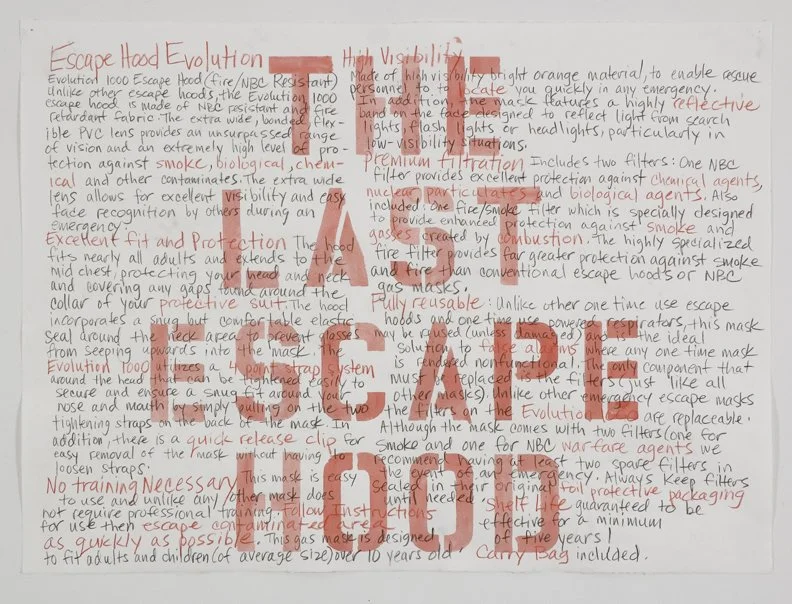 THE
LAST
ESCAPE
HOOD
Escape Hood Evolution
Evolution 1000 Escape Hood (fire/NBC Resistant)
Unlike other escape hoods, the Evolution 1000
escape hood is made of NBC resistant and fire
retardant fabric. The extra wide, bonded, flex-
ible PVC lens provides an unsurpassed range
of vision and an extremely high level of pro-
tection against smoke, biological, chem-
ical and other contaminates. The extra wide
lens allows for excellent visibility and easy
face recognition by others during an
emergency.
Excellent fit and Protection The hood
fits nearly all adults and extends to the
mid chest, protecting your head and neck
and covering any gaps found around the
collar of your protective suit. The hood
incorporates a snug but comfortable elastic
seal around the neck area to prevent gasses
from seeping upwards into the mask. The
Evolution 1000 utilizes a 4 point strap system
around the head that can be tightened easily to
secure and ensure a snug fit around your
nose and mouth. Simply pulling the two
tightening straps on the back of the mask. In
addition, there is a quick release clip for
easy removal of the mask without having to
loosen straps.
No training Necessary This mask is easy
to use and unlike any other mask does
not require professional training. Follow Instructions
for use then escape contaminated area
as quickly as possible. This gas mask is designed
to fit adults and children (of average size) over 10 years old.
High Visibility
Made of high visibility bright orange material, to enable rescue
personnel to to locate you quickly in any emergency.
In addition, the mask features a highly reflective
band on the face designed to reflect light from search
lights, flash lights or headlights, particularly in
low-visibility situations.
Premium Filtration Includes two filters: One NBC
filter provides excellent protection against chemical agents,
nuclear particulates and biological agents. Also
included: One fire/smoke filter which is specially designed
to provide enhanced protection against smoke and
gasses created by combustion. The highly specialized
fire filter provides far greater protection against smoke
and than conventional escape hoods or NBC
gas masks.
Fully reusable: Unlike other one time use escape
hoods and one time use powered respirators, this mask
may be reused (unless damaged) and is the ideal
solution to false alarms where any one time mask
is rendered nonfunctional. The only component that
must be replaced are the filters (just like all
other masks). Unlike other emergency escape masks
the filters on the Evolution are replaceable.
Although the mask comes with two filters (one for
smoke and one for NBC warfare agents we
recommend having at least two spare filters in
the event of an emergency. Always keep filters
sealed in their original foil protective packaging
until needed. Shelf life guaranteed to be
effective for a minimum
of five years!
Carry Bag included.